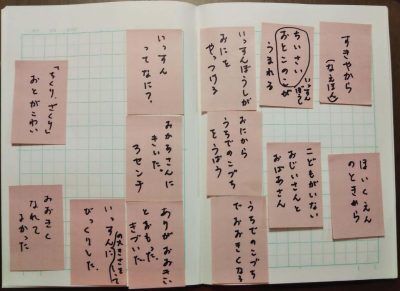 すきやから
(なえほん)
ほいくえん
のときから
ちいさい
おとこのこが
いっすん
ぼうし
うまれる
こどもがいない
おじいさんと
おばあさん
いっすんぼうしが
おにを
やっつける
おにから
うちでのこづち
をうばう
うちでのこづち
でおおきくなる
いっすん
ってなに?
おかあさんに
きいた。
3センチ
ありがおおきい
とおもった。
きづいた
いっすんに
びっくりした。
「ちくり ざくり」
おとがこわい
おおきく
なれて
よかった